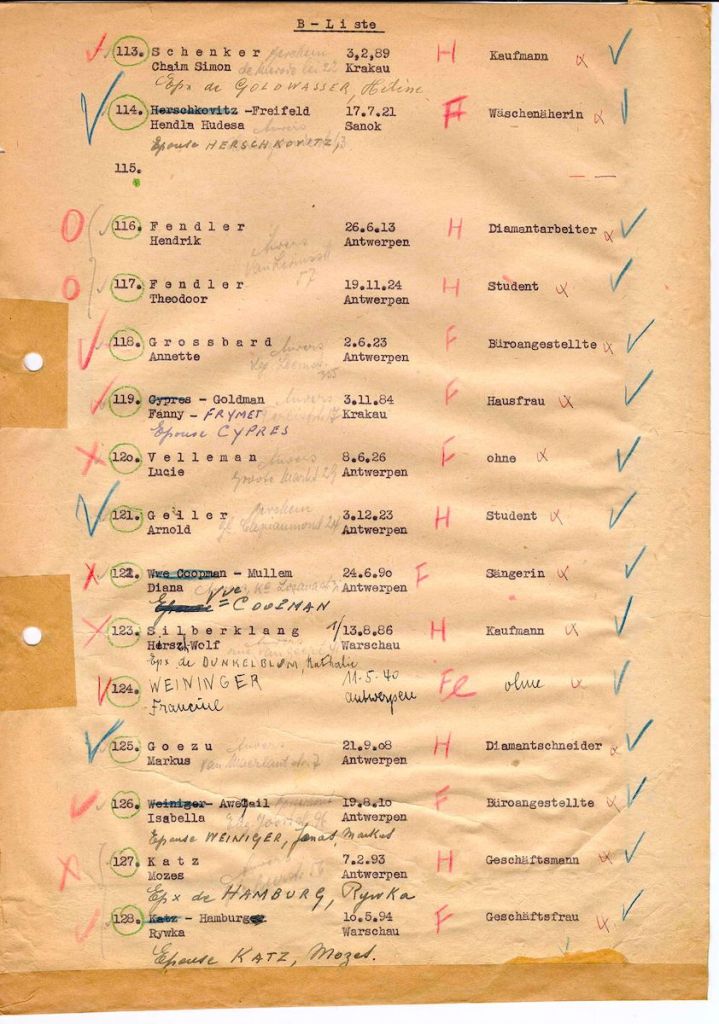 B - L i s t e
113. S c h e n k e r 3,2,89 H Kaufmann
Chaim Simon Krakau
Epx de GOLDWASSER,
114. Herschkovitz -Freifeld 17.7.21 F Wäschenäherin
Hendla Rudesa Sanok
Epouse HERSCHKOVITZ
115.
116. F e n d l e r 26.6.13 H Diamantarbeiter
Hendrik Antwerpen
117. F e n d l e r 19.11.24 H Student
Theodoor Antwerpen
118. G r o s s b a r d Anvers 2.6.23 F Büroangestellte
Annette Antwerpen
119. Cypres - Goldman Anvers 3.11.84 F Hausfrau
Fanny - FRYMET Krakau
Epouse CYPRES
120. V e l l e m a n Anvers 8.6.26 F ohne
Lucie Groote Markt 29 Antwerpen
121. G e l l e r Berchem 3.12.23 H Student
Arnold Antwerpen
122. Wwe Coopman - Mullem 24.6.90 F Sängerin
Diana Antwerpen
Epouse Vve = COOLMAN
123. S i l b e r k l a n g 1/13.8.86 H Kaufmann
Hersz Wolf Warschau
Epx de DUNKELBLUM, Nathalie
124. WEININGER 11-5.40 Fe ohne
Francine Antwerpen
125. G o e z u Anvers 21.9.08 H Diamantschneider
Markus Van Maerlantstr. 7 Antwerpen
126. Weiniger- Awegail 19.8.10 F Büroangestellte
Isabella Antwerpen
Epouse WEINIGER, Jonas, Markus
127. K a t z 7.2.93 H Geschäftsmann
Mozes Antwerpen
Epx de HAMBURG, Rywka
128. Katz - Hamburger 10.5.94 F Geschäftsfrau
Rywka Warschau
Epouse KATZ, Mozes.